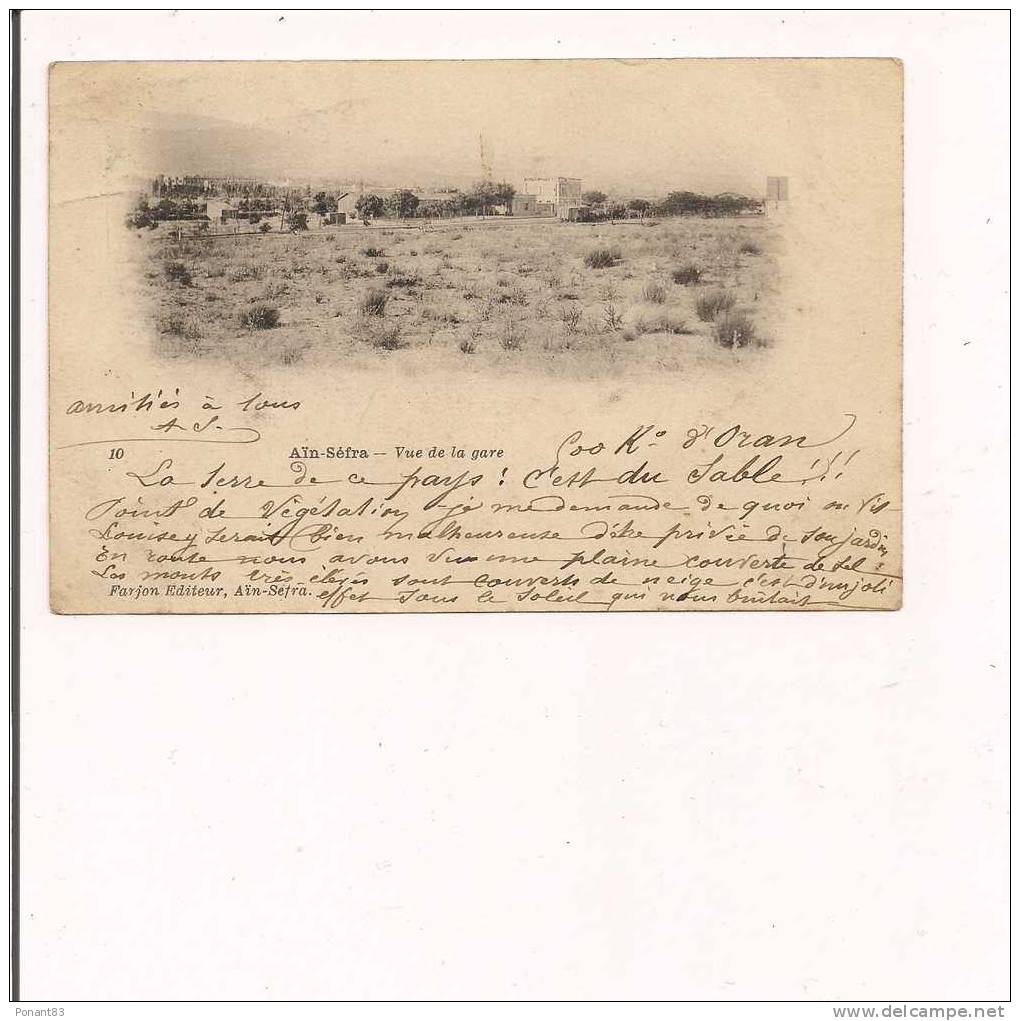 amitiés à tous
A. S.
10 Aïn-Séfra — Vue de la gare
600 Ko d'Oran
La terre de ce pays ! C'est du Sable !!!
Point de Végétation - je me demande de quoi on vit
Louise y serait bien malheureuse d'être privée de son jardin
En route nous avons vu une plaine couverte de sel :
Les monts très élevés sont couverts de neige c'est d'un joli
Farjon Editeur, Aïn-Sefra.
effet sous le soleil qui nous brûlait
Ponant83
www.delcampe.net